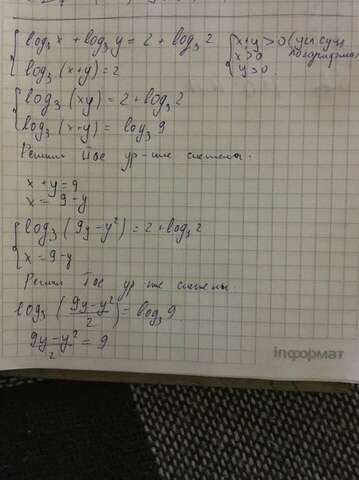 { log₃ x + log₃ y = 2 + log₃ 2
log₃ (x+y) = 2
{ x+y > 0 (усл. сущ. логарифма
x > 0
y > 0
{ log₃ (xy) = 2 + log₃ 2
log₃ (x+y) = log₃ 9
Решим IIое ур-ние системы.
x + y = 9
x = 9 - y
{ log₃ (9y - y²) = 2 + log₃ 2
x = 9 - y
Решим Iое ур-ние системы
log₃ ((9y - y²)/2) = log₃ 9
(9y - y²)/2 = 9
inформат